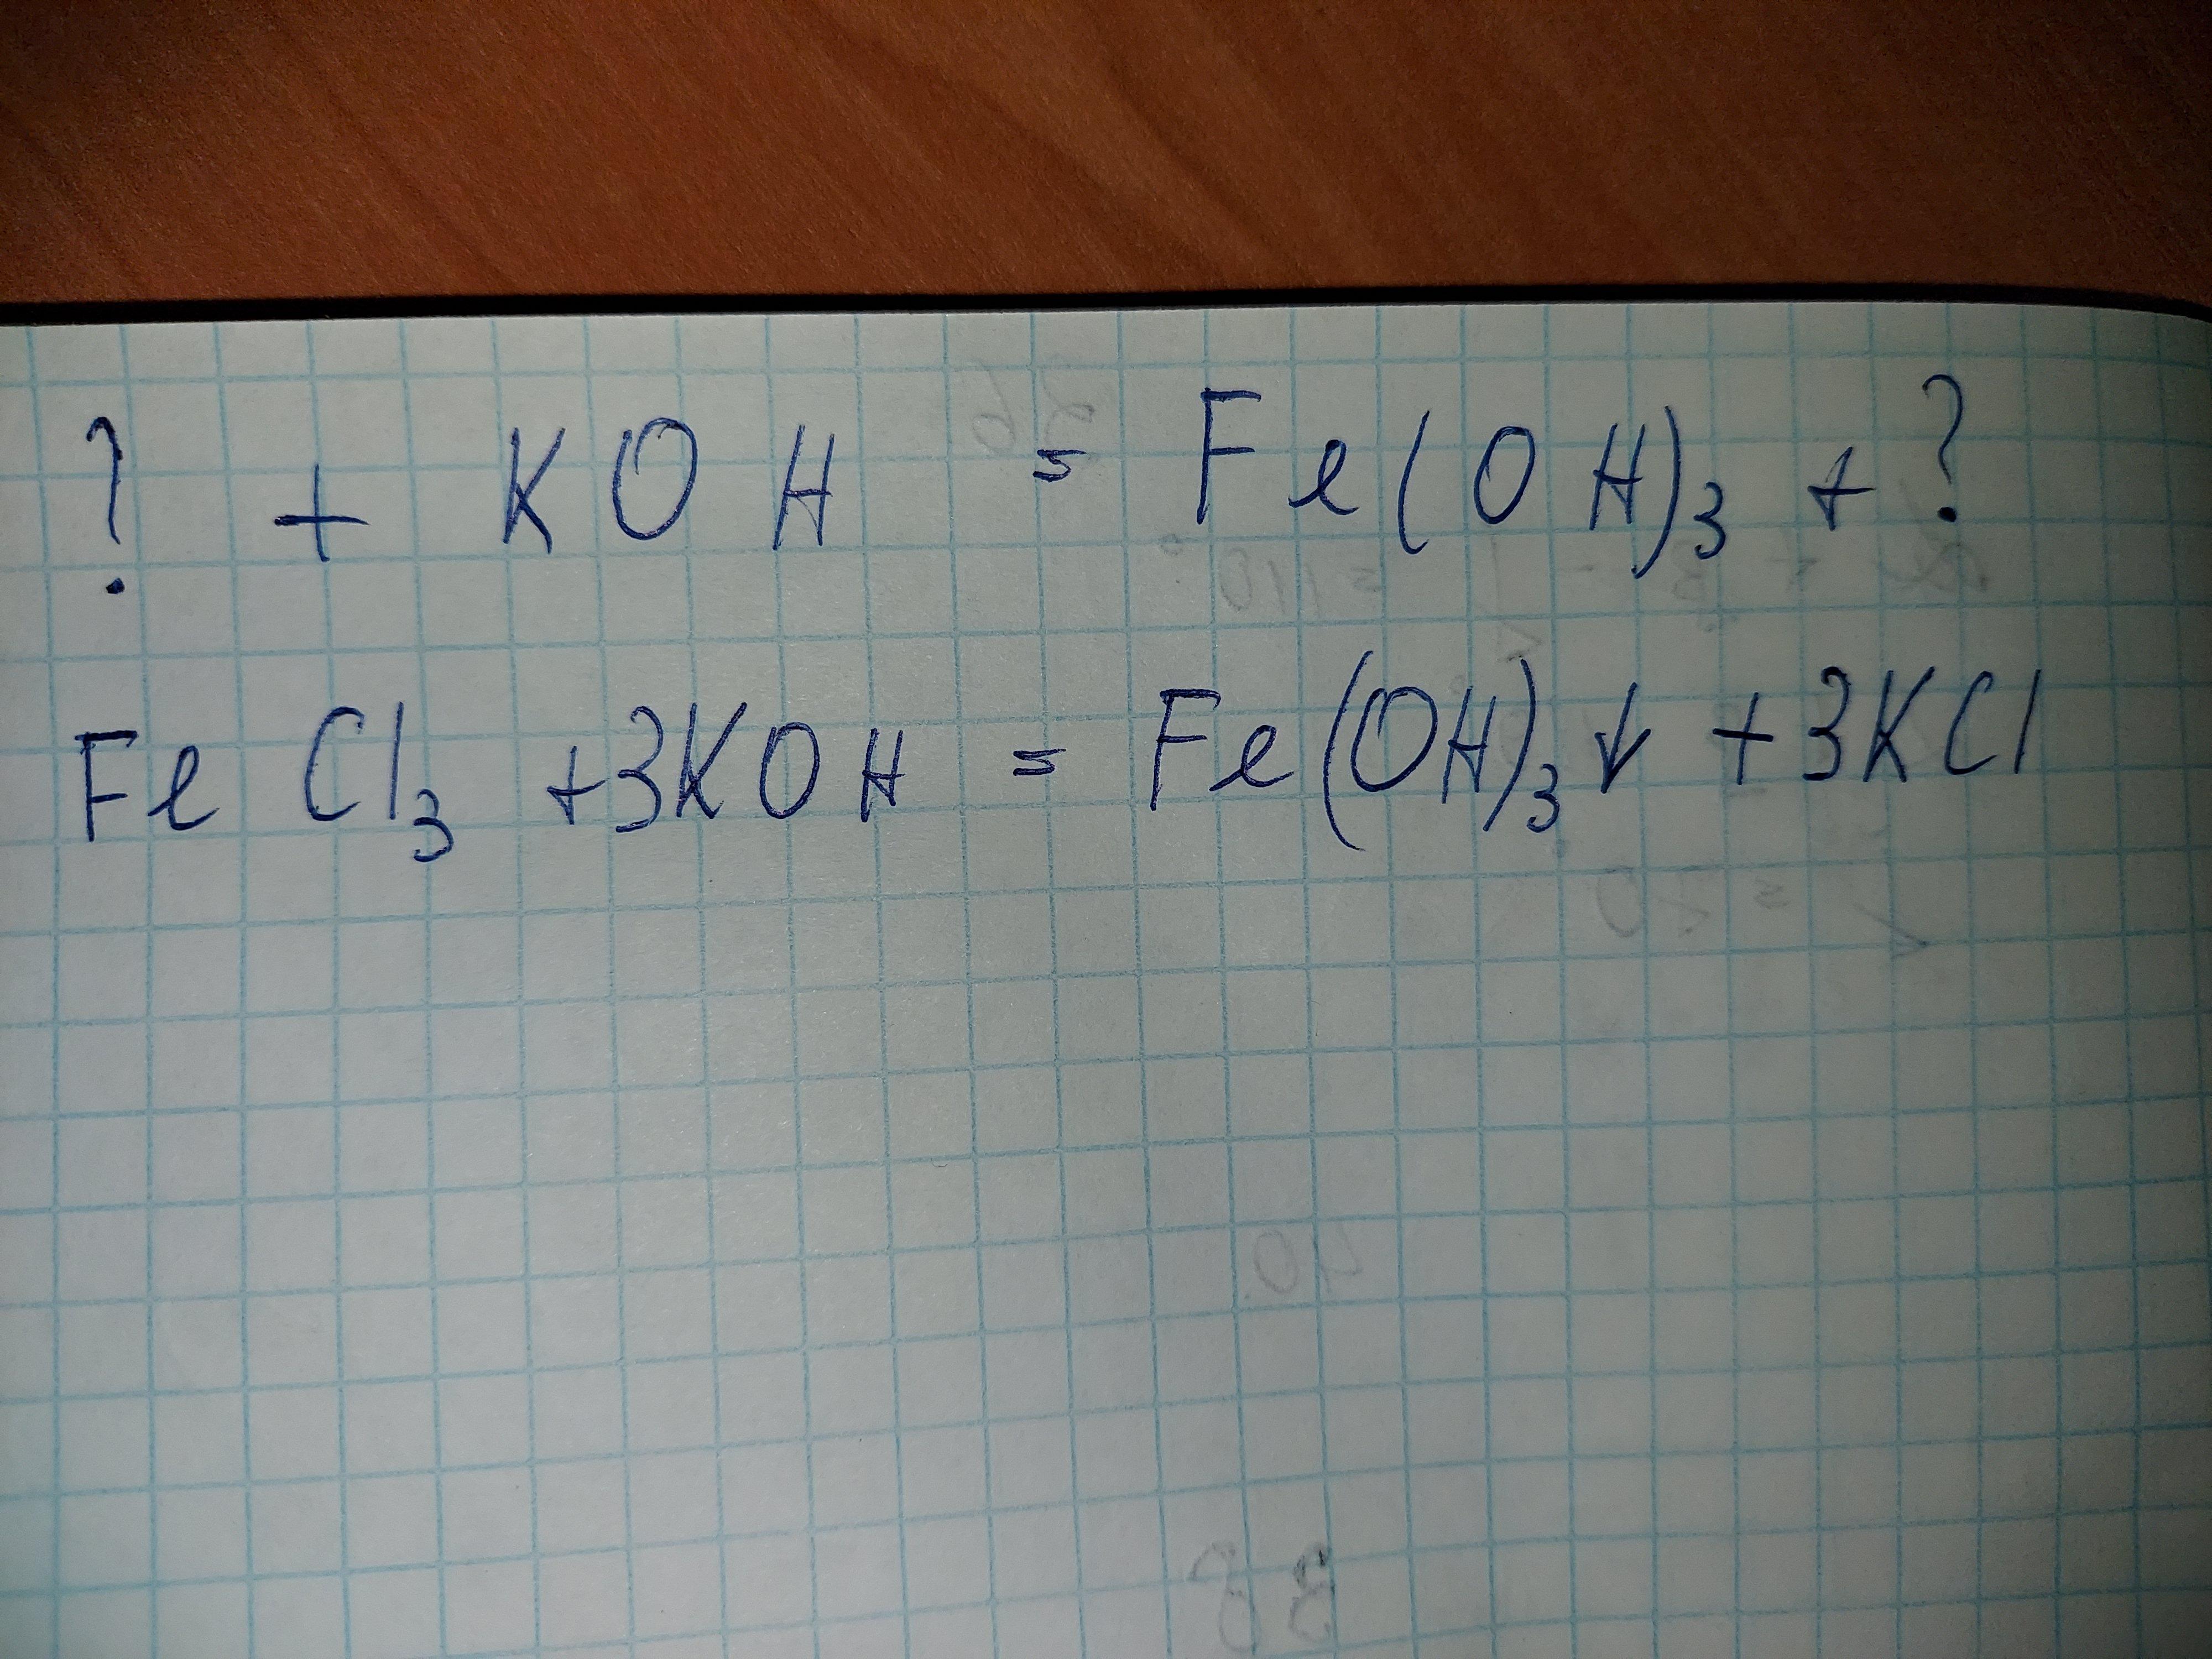 ? + KOH = Fe(OH)₃ + ?
FeCl₃ +3KOH = Fe(OH)₃↓ +3KCl